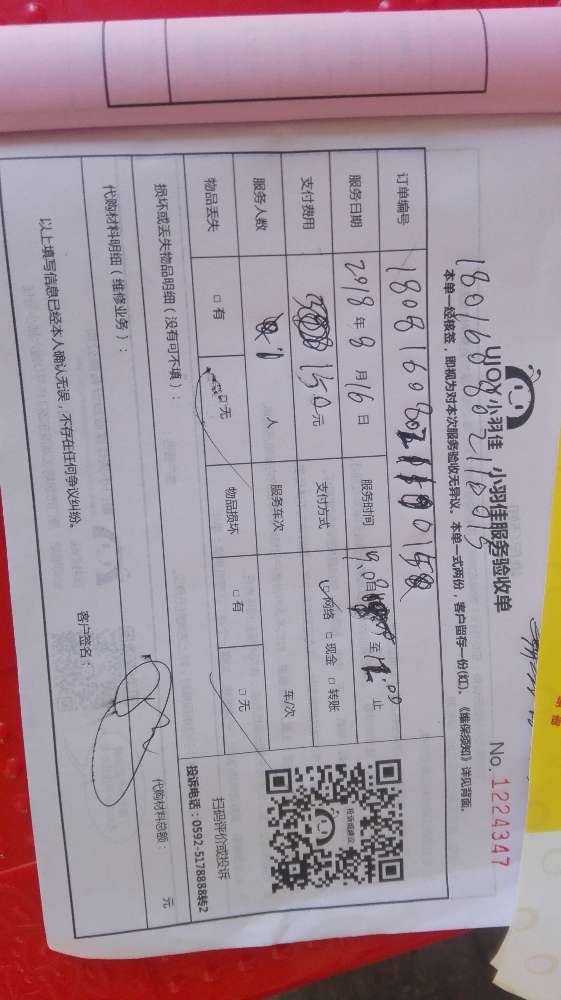 UJOY小羽佳 小羽佳服务验收单
No. 1224347
本单一经核签，即视为对本次服务验收无异议。本单一式两份，客户留存一份(红)。《维保须知》详见背面。
订单编号
服务日期 2018 年 8 月 16 日 服务时间 自 至 12:00 止
支付费用 150 元 支付方式 ☑网络 □现金 □转账
服务人数 1 人 服务车次 车/次
物品丢失 □有 □无 物品损坏 □有 □无
损坏或丢失物品明细（没有可不填）：
代购材料明细（维修业务）：
代购材料总额： 元
以上填写信息已经本人确认无误，不存在任何争议纠纷。
客户签名：
投诉或建议
扫码评价或投诉
投诉电话：0592-5178888转2